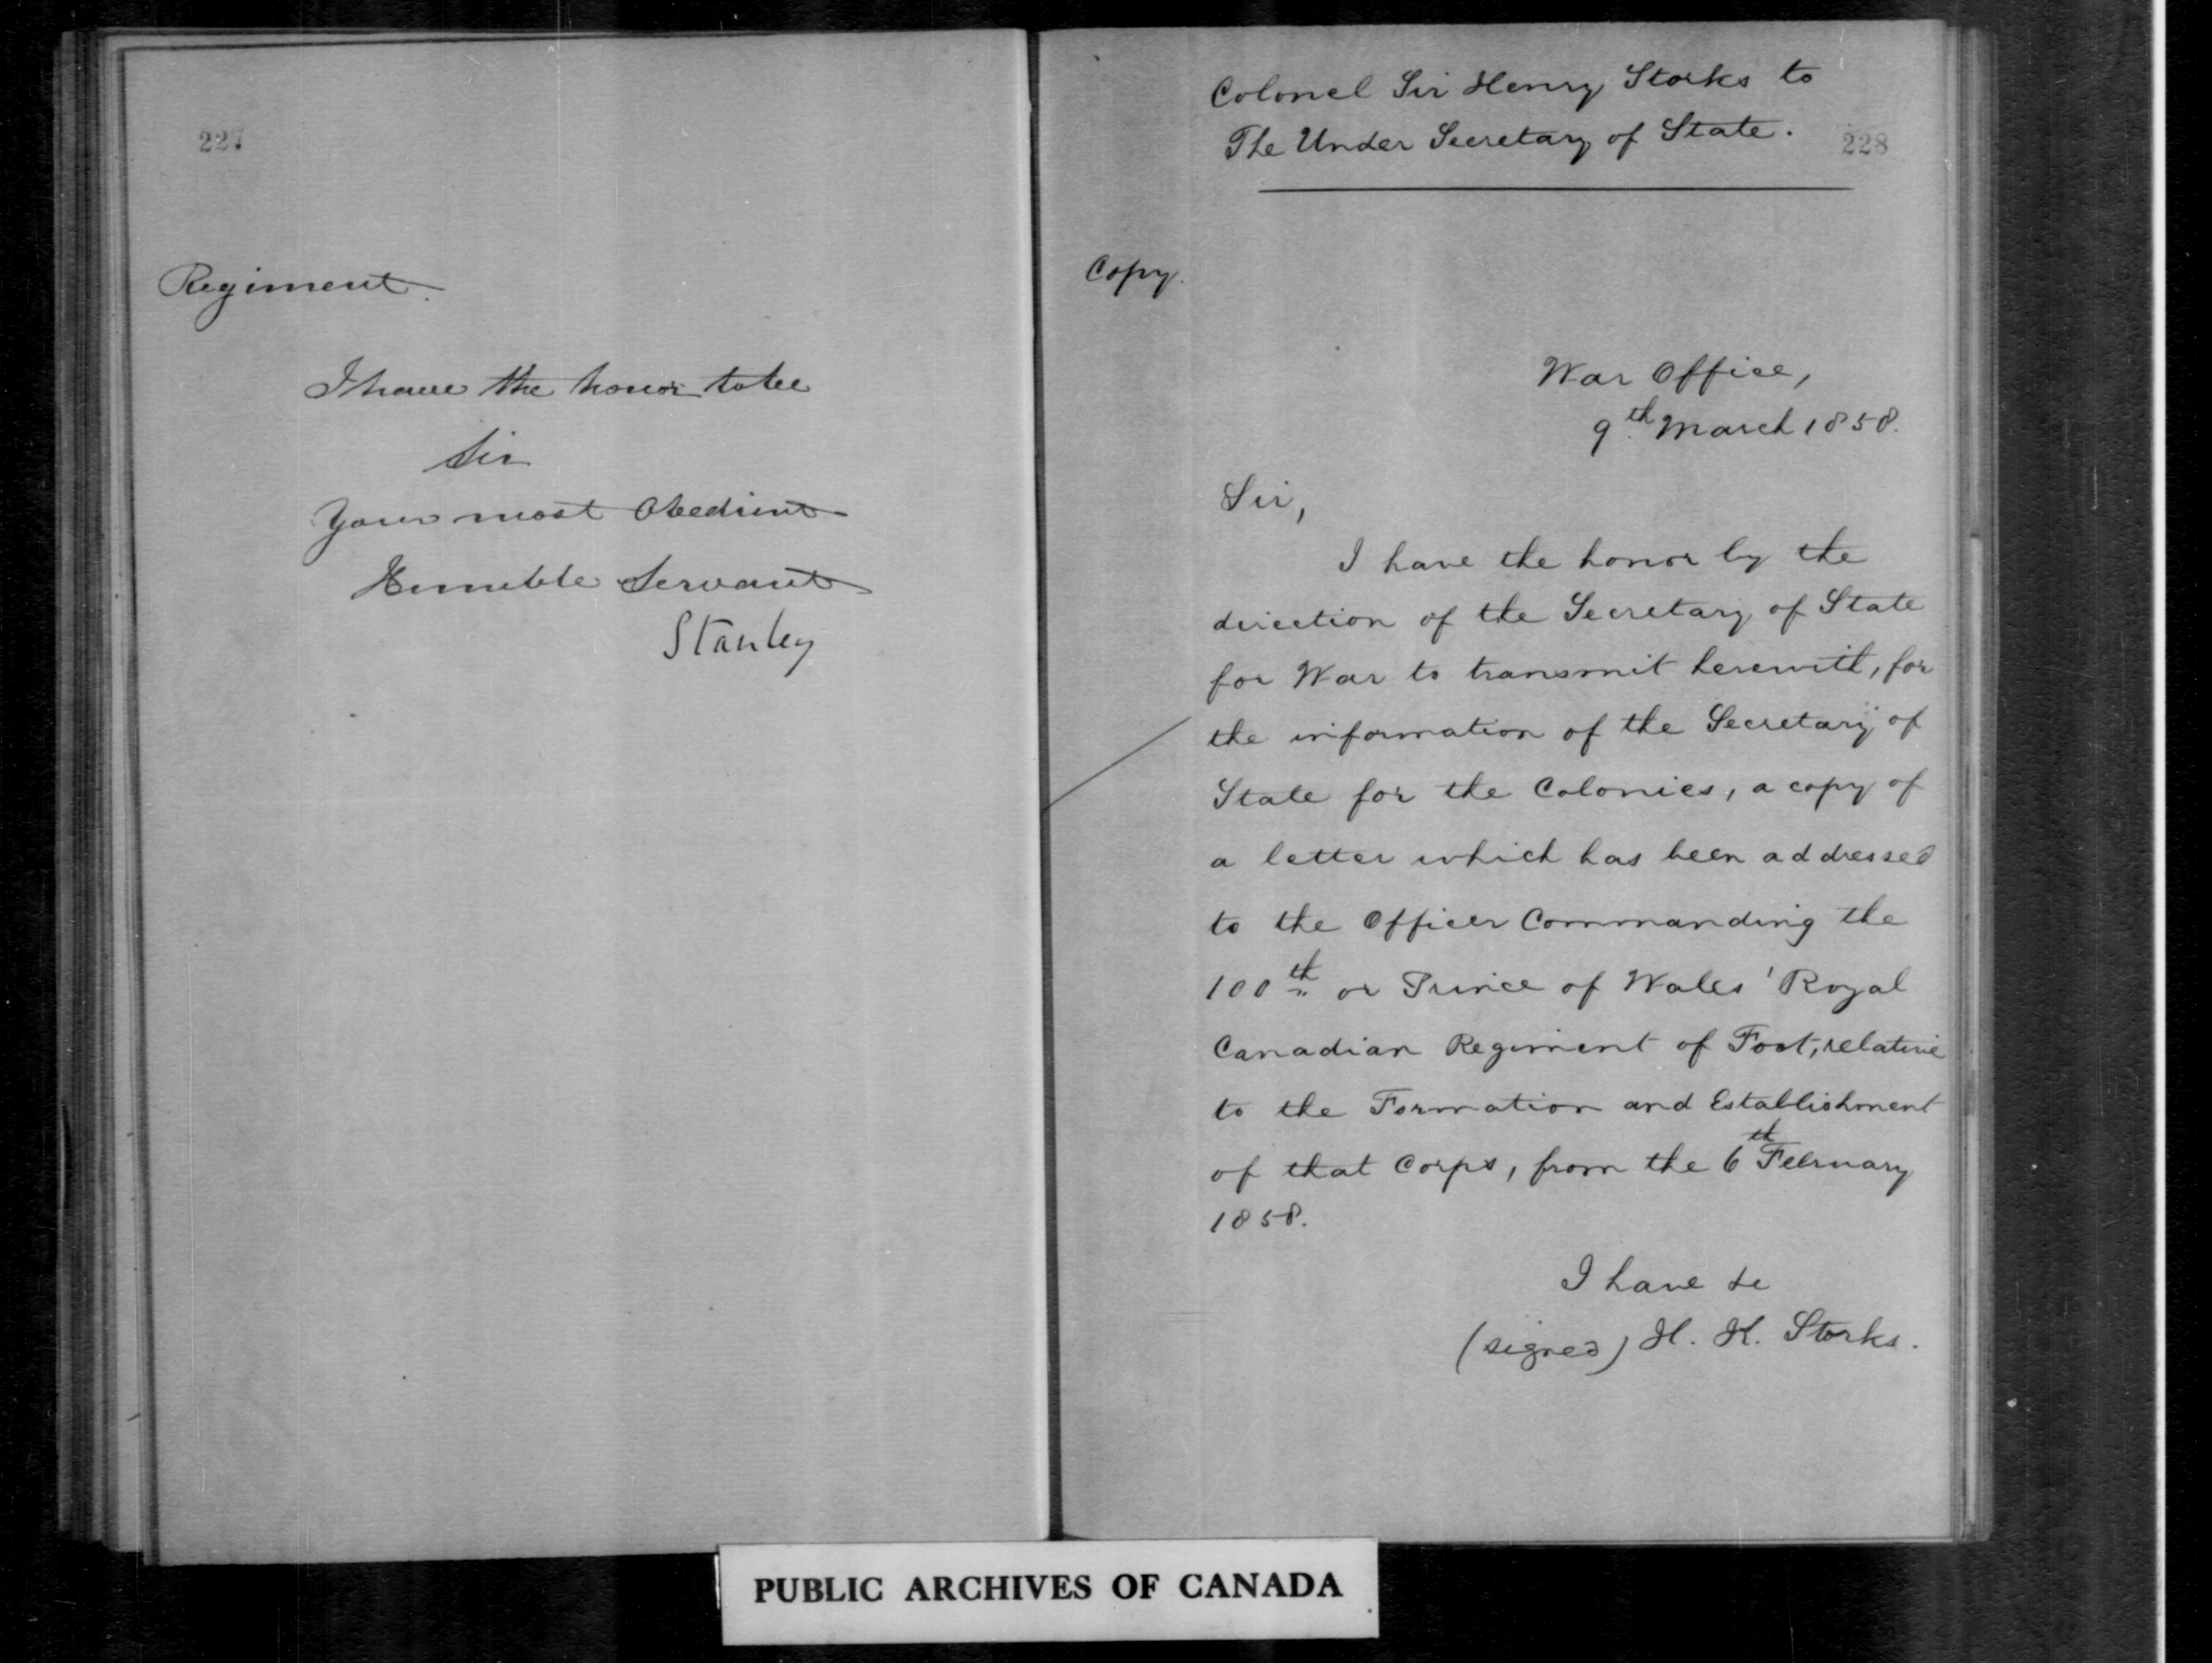 227
Regiment.
I have the honor to be
Sir
Your most Obedient
Humble Servant
Stanley
Colonel Sir Henry Storks to
The Under Secretary of State.
228
Copy.
War Office,
9th March 1858.
Sir,
I have the honor by the
direction of the Secretary of State
for War to transmit herewith, for
the information of the Secretary of
State for the Colonies, a copy of
a letter which has been addressed
to the Officer Commanding the
100th or Prince of Wales' Royal
Canadian Regiment of Foot, relative
to the Formation and Establishment
of that Corps, from the 6th February
1858.
I have &c
(signed) H. K. Storks.
PUBLIC ARCHIVES OF CANADA